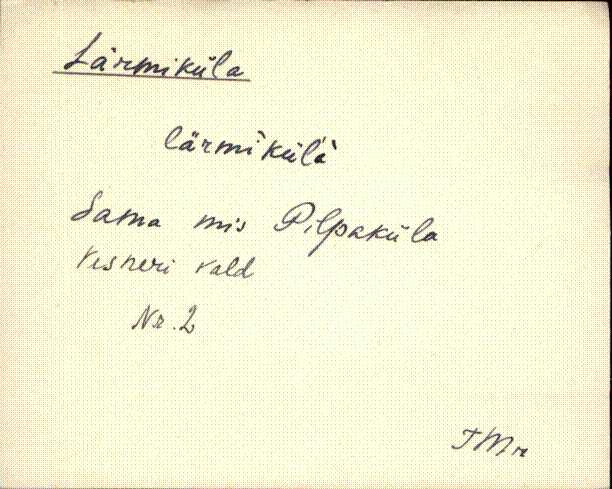 Lärmiküla
lärmi`külä`
Sama mis Pilpaküla
Vesneri vald
Nr. 2
TMr